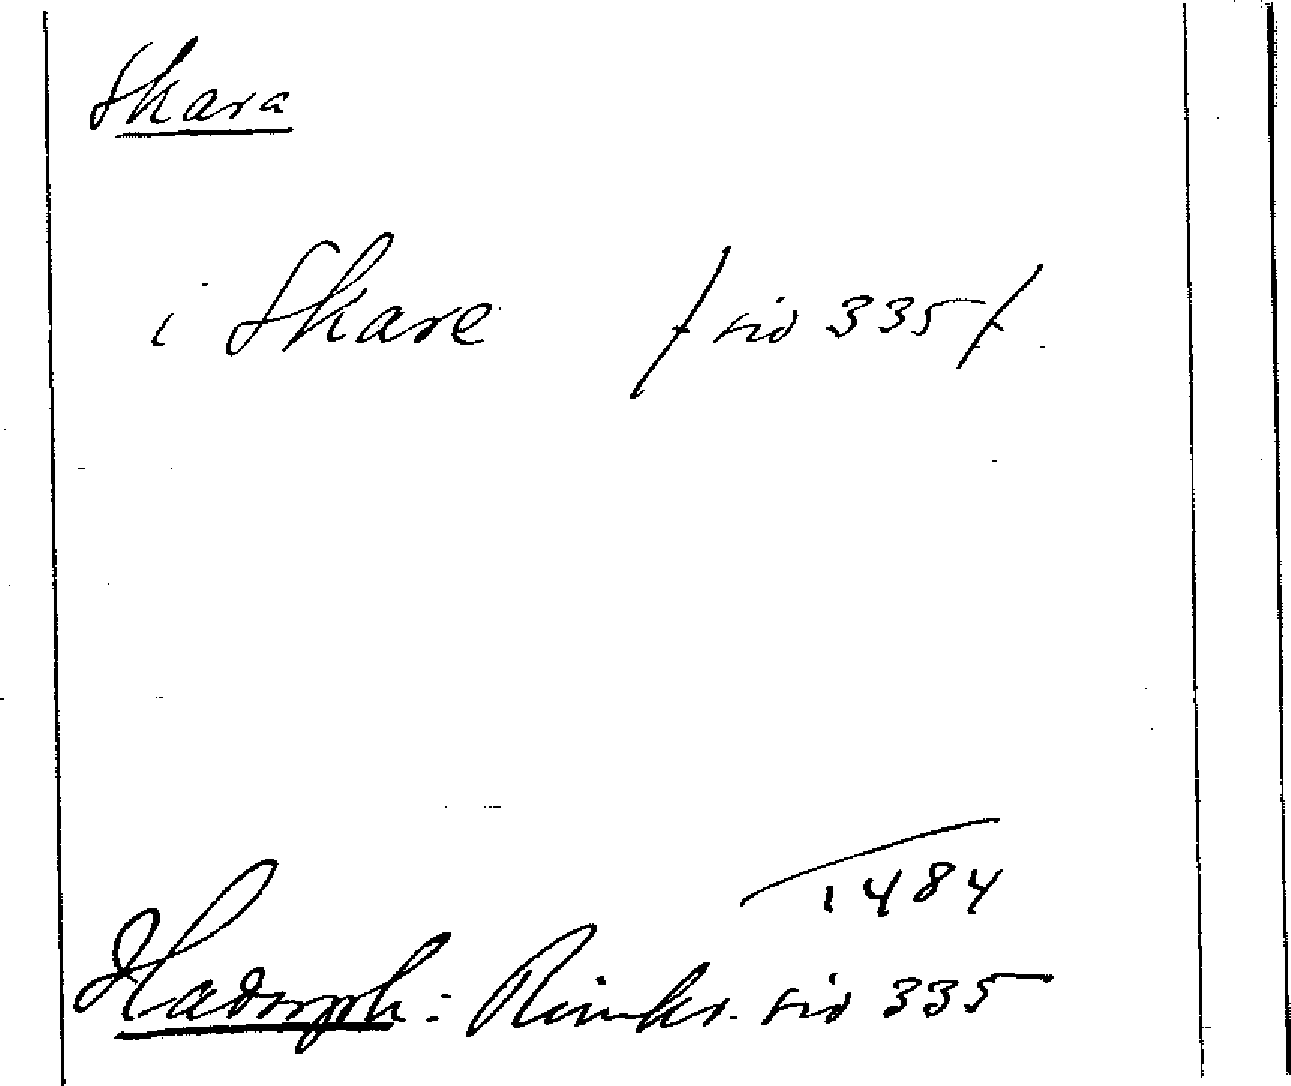 Skara
i Skare /sid 335/.
1484
Hadorph: Rimkr. sid 335